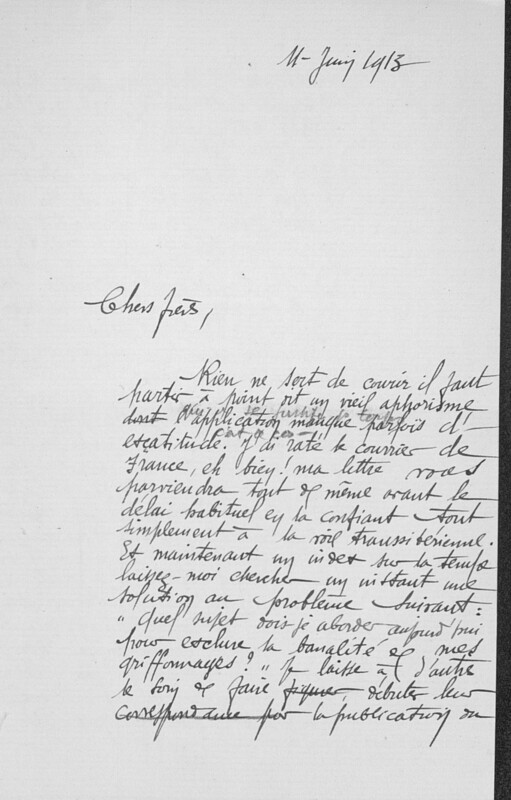 11 Juin 1913
Chers frères,
Rien ne sert de courir il faut
partir à point dit un vieil aphorisme
dont l'application manque parfois d'
exactitude. J'ai raté le courrier de
France, eh bien! ma lettre vous
parviendra tout de même avant le
délai habituel en la confiant tout
simplement à la voie transsibérienne.
Et maintenant un index sur la tempe
laissez-moi chercher un instant une
solution au problème suivant:
" Quel sujet dois-je aborder aujourd'hui
pour exclure la banalité de mes
griffonnages? " Je laisse à d'autre
le soin de faire débuter leur
correspondance par la publication du